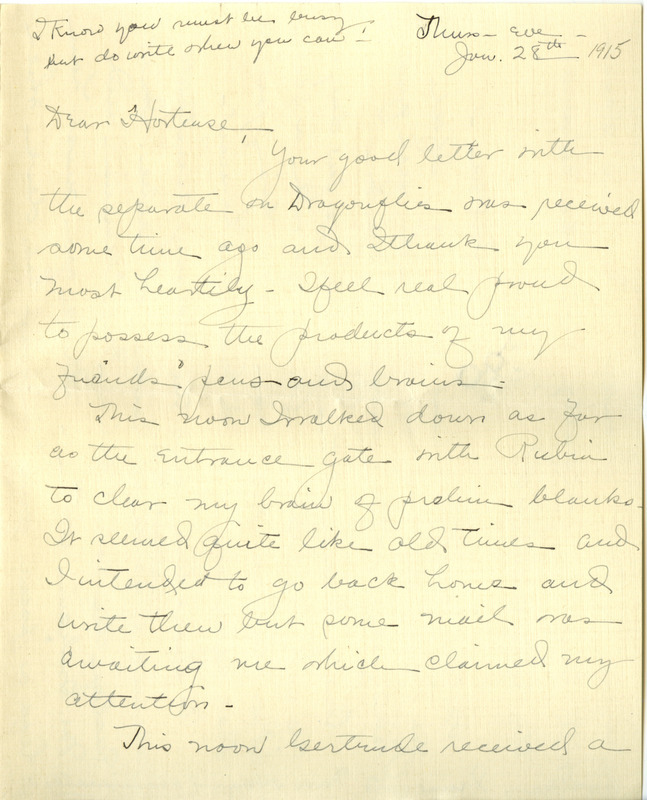 I know you must be busy
but do write when you can!
Thurs - eve -
Jan. 28th 1915
Dear Hortense,
Your good letter with
the separate on Dragonflies was received
some time ago and I thank you
most heartily - I feel real proud
to possess the products of my
friends' pens and brains -
This noon I walked down as far
as the entrance gate with Rubin
to clear my brain of prelim blanks -
It seemed quite like old times and
I intended to go back home and
write then but some mail was
awaiting me which claimed my
attention -
This noon Gertrude received a